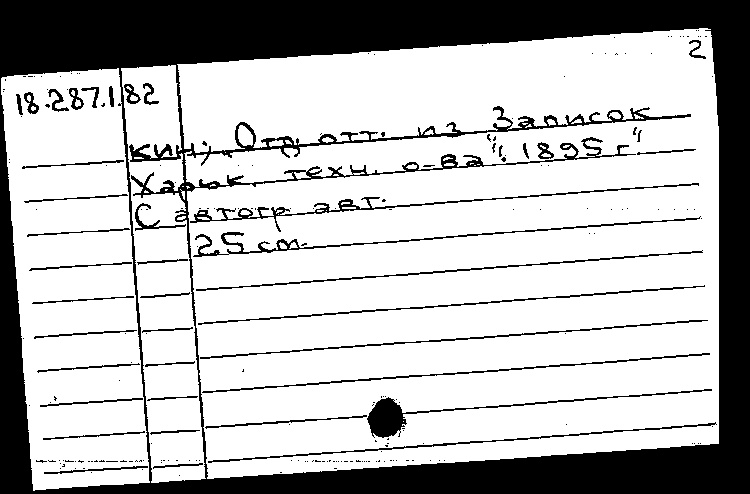 2
18.287.1.82
кин; „Отд. отт. из Записок
Харьк. техн. о-ва“. 1895 г“
С автогр. авт.
25 см.